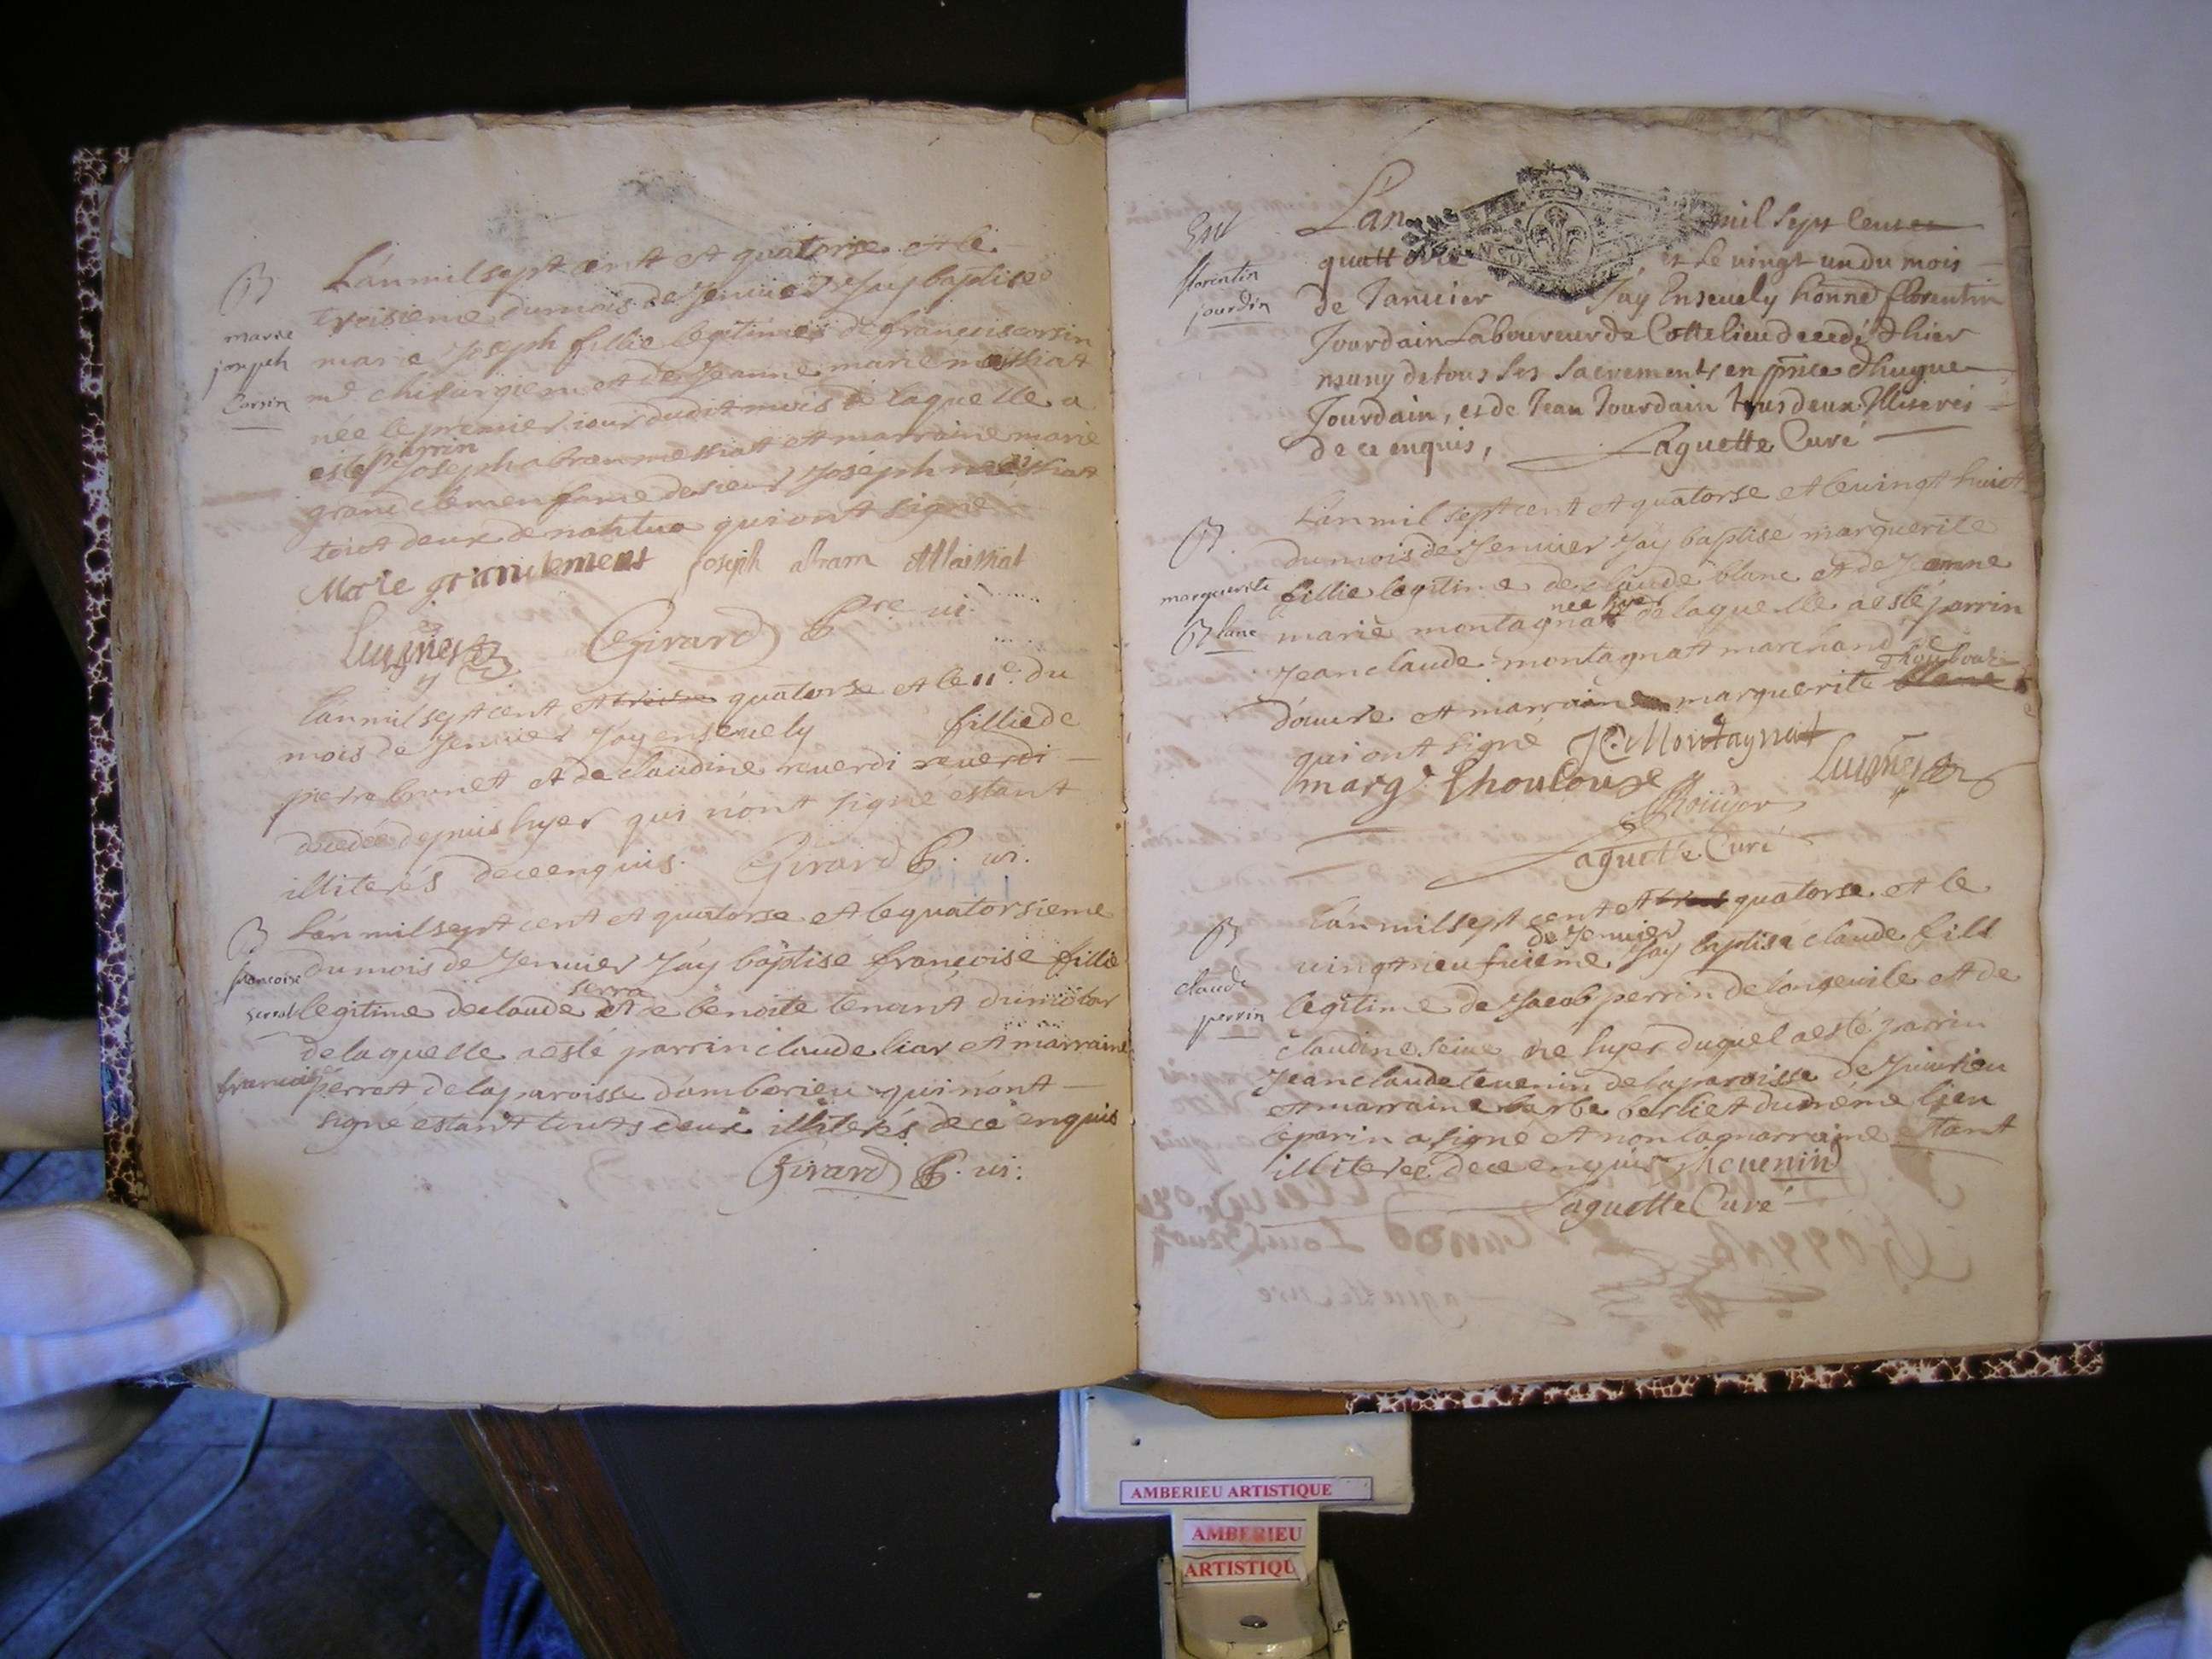 B
marie
joseph
Corsin
Lán mil sept cent et quatorse et le
troisieme du mois de Jenuier Jáy baptisé
marie Joseph fillie legitime de françois corsin
me chirurgien et de Jeanne marie messiat
née le premier iour dudit mois de laquelle a
esté parrin Joseph abram messiat et marraine marie
grand clemen fame de sieur Joseph messiat
tout deux de nantua qui ont signé
Marie grandclement Joseph abram Maissiat
Girard Ptre vi.
Lán mil sept cent et treise quatorse et le 11e. du
mois de Jenuier Jáy enseuely fillie de
pierre brunet et de claudine reuerdi reuerdi
decedée depuis hyer qui nónt signé éstant
illiterés de ce enquis. Girard P. vi.
B
francoise
serra
Lán mil sept cent et quatorse et le quatorsieme
du mois de Jenuier Jáy baptise françoise fillie
legitime de claude serra et de benoite tenant
de laquelle a esté parrin claude liar et marraine
françoise perret de la paroisse dámberieu qui nónt
signé estant touts deux illiterés de ce enquis
Girard P. vi:
Ent
florentin
jourdin
Lán mil Sept Cents et
quattorze et le vingt un du mois
de Januier Jáy Enseuely honned florentin
Jourdain Laboureur de Cottelieu decedé d'hier
muny de tous les Sacrements en pnce d'hugue
Jourdain, et de Jean Jourdain tous deux Illiterés
de ce enquis, Laguette Curé
B
marguerite
Blanc
Lán mil sept cent et quatorse et le uingt huict
du mois de Jenuier Jáy baptisé marguerite
fillie legitime de claude blanc et de Jeanne
marie montagnat née hyer de laquelle a esté parrin
Jean claude montagnat marchand de
dóuure et marraine marguerite blanc choulouze
qui ont signé JC Montagnat
marg. Choulouze
Rouyer
Laguette Curé
B
claude
perrin
Lán mil sept cent et quatorse et le
uingt neufuieme de Jenuier Jáy baptisé claude fils
legitime de Jacob perrin de longeuile et de
claudine seiue né hyer duquel a esté parrin
Jean claude teuenin de la paroisse de Juiurieu
et marraine barbe berliet du méme lieu
le parin a signé et non la marraine éstant
illiteree de ce enquis Theuenin
Laguette Curé
AMBERIEU ARTISTIQUE
AMBERIEU
ARTISTIQU